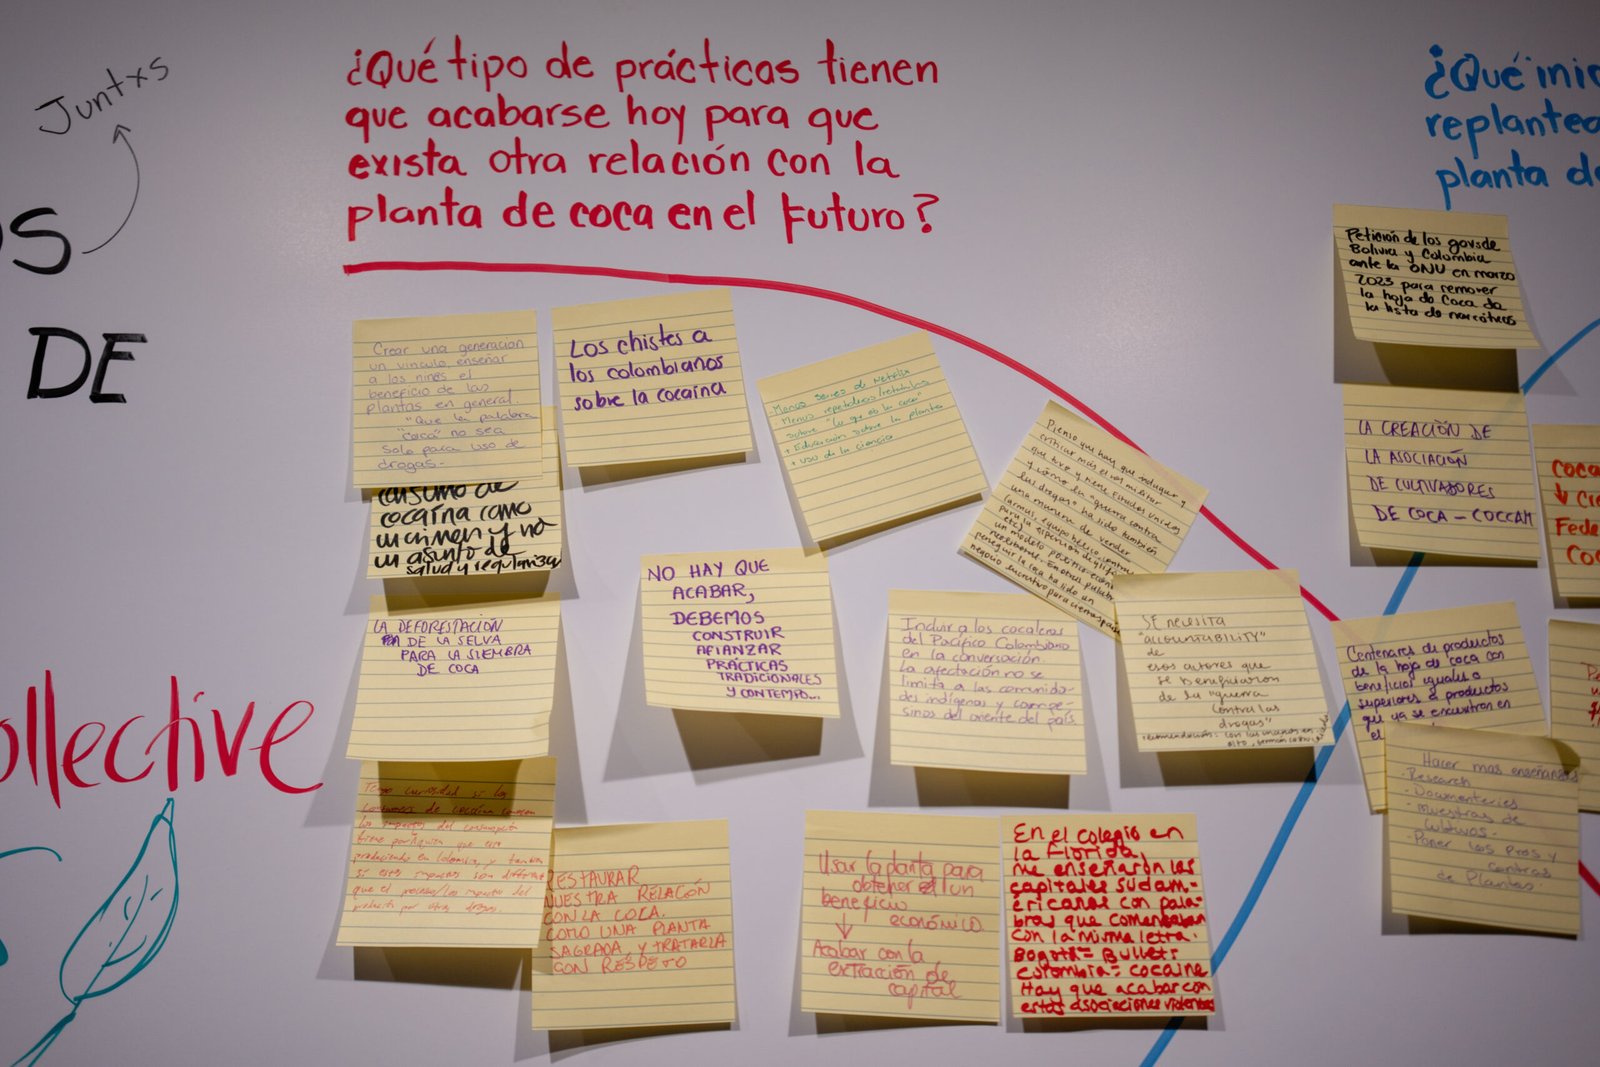 Juntxs
OS
DE
ollective
¿Qué tipo de prácticas tienen
que acabarse hoy para que
exista otra relación con la
planta de coca en el futuro?
Crear una generación
un vinculo, enseñar
a los niños el
beneficio de las
plantas en general.
"Que la palabra
"coca" no sea
Solo para uso de
drogas.-
consumo de
cocaína como
un crimen y no
un asunto de
salud y
LA DEFORESTACIÓN
DE LA SELVA
PARA LA SIEMBRA
DE COCA
Tengo curiosidad si los
consumidores de cocaína conocen
los impactos del
tiene por
produciendo en Colombia, y también
si estos impactos son diferentes
que el proceso/los impactos del
producto por otras drogas.
Los chistes a
los colombianos
sobre la cocaína
- Menos series de Netflix
- Menos
sobre "lo que es la coca"
+ Educación sobre la planta
+ uso de la ciencia
Pienso que hay que indagar y
criticar más el rol militar
que tuvo y tiene Estados Unidos
y cómo la "guerra contra
las drogas" ha sido también
una manera de vender
(armas, equipo bélico,
para la aspersión de
etc)
un modelo político-
neoliberal. En otras palabras
perseguir la coca ha sido un
negocio lucrativo para
NO HAY QUE
ACABAR,
DEBEMOS
CONSTRUIR
AFIANZAR
PRÁCTICAS
TRADICIONALES
Y CONTEMPO...
Incluir a los cocaleros
del Pacífico Colombiano
en la conversación.
La afectación no se
limita a las comunida-
des indígenas y campe-
sinos del oriente del país
SE NECESITA
"ACCOUNTABILITY"
de
esos actores que
se beneficiaron
de la "guerra
contra las
drogas"
RESTAURAR
NUESTRA RELACIÓN
CON LA COCA.
COMO UNA PLANTA
SAGRADA, Y TRATARLA
CON RESPETO
Usar la planta para
obtener un
beneficio
económico.
↓
Acabar con la
extracción de
capital
En el colegio en
la Florida,
me enseñaron las
capitales sudam-
ericanas con pala-
bras que comenzaban
con la misma letra.
Bogotá = Bullet:
Colombia = cocaine
Hay que acabar con
estas asociaciones violentas
¿Qué inic
replantea
planta de
Petición de los govs de
Bolivia y Colombia
ante la ONU en marzo
2025 para remover
la hoja de Coca de
la lista de narcóticos
LA CREACIÓN DE
LA ASOCIACIÓN
DE CULTIVADORES
DE COCA - COCCAM
Coca
↓ Cre
Fede
Coc
Centenares de productos
de la hoja de coca con
beneficios iguales o
superiores a productos
que ya se encuentran en
el
Hacer mas enseñanzas
- Research
- Documenteries
- Muestras de
cultivos.
- Poner los Pros y
contras
de Plantas.